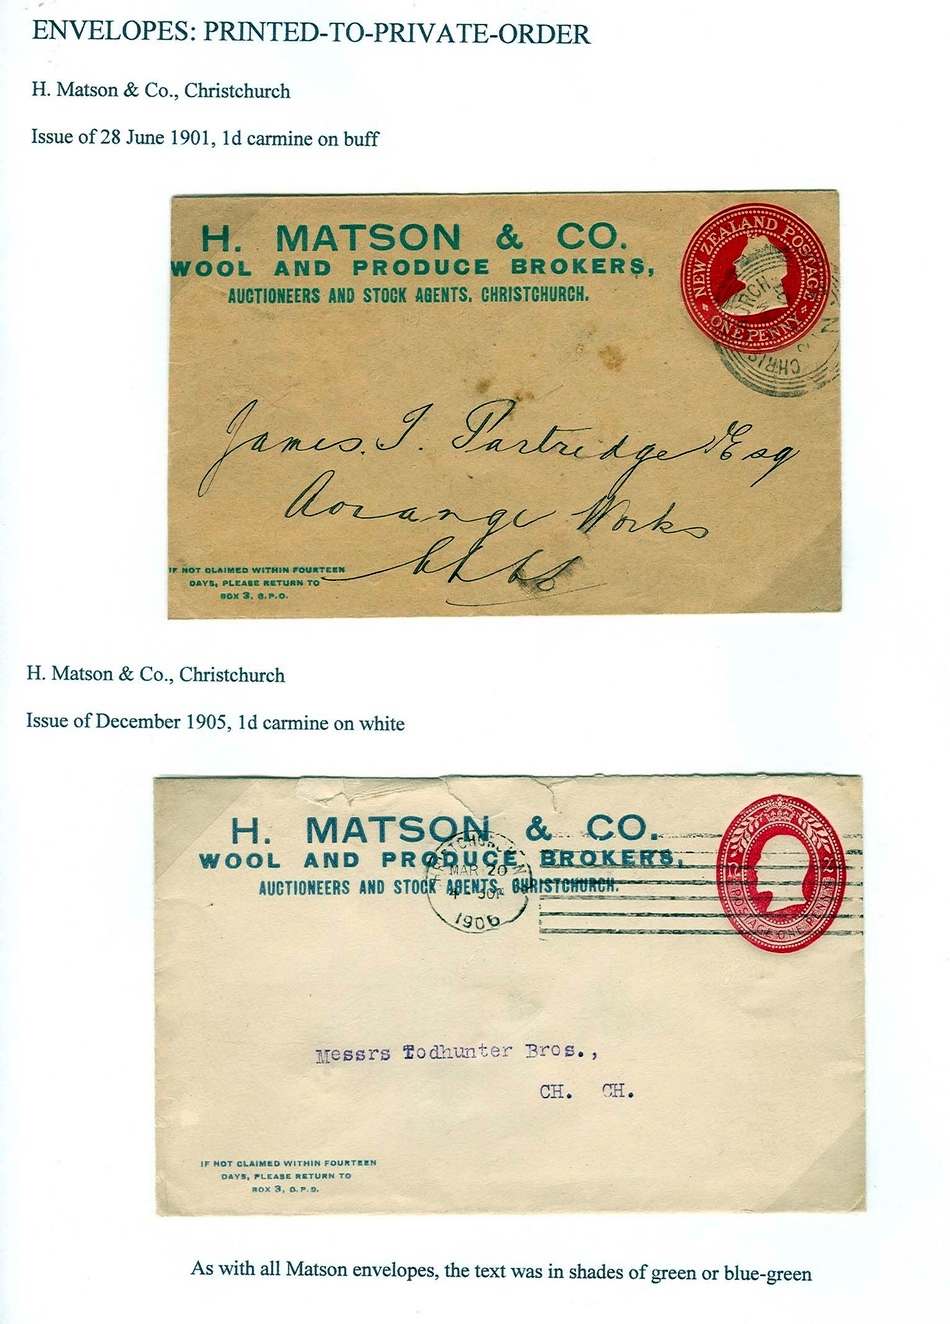 ENVELOPES: PRINTED-TO-PRIVATE-ORDER
H. Matson & Co., Christchurch
Issue of 28 June 1901, 1d carmine on buff
H. MATSON & CO.
WOOL AND PRODUCE BROKERS,
AUCTIONEERS AND STOCK AGENTS, CHRISTCHURCH.
NEW ZEALAND POSTAGE
ONE PENNY
James. T. Partridge Esq
Aorange Works
IF NOT CLAIMED WITHIN FOURTEEN
DAYS, PLEASE RETURN TO
BOX 3, G.P.O.
H. Matson & Co., Christchurch
Issue of December 1905, 1d carmine on white
H. MATSON & CO.
WOOL AND PRODUCE BROKERS,
AUCTIONEERS AND STOCK AGENTS, CHRISTCHURCH.
MAR 20
1906
POSTAGE ONE PENNY
Messrs Todhunter Bros.,
CH. CH.
IF NOT CLAIMED WITHIN FOURTEEN
DAYS, PLEASE RETURN TO
BOX 3, G.P.O.
As with all Matson envelopes, the text was in shades of green or blue-green